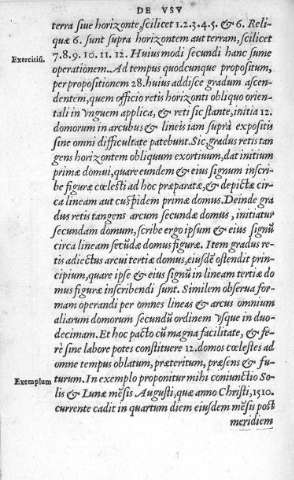 DE VSV
terra siue horizonte, scilicet 1.2.3.4.5. & 6. Reli-
quæ 6. sunt supra horizontem aut terram, scilicet
7.8.9.10.11.12. Huius modi secundi hanc sume
Exercitiũ.
operationem. Ad tempus quodcunque propositum,
per propositionem 28. huius addisce gradum ascen-
dentem, quem officio retis horizonti obliquo orien-
tali in Ynguem applica, & reti sic stante, initia 12.
domorum in arcubus & lineis iam supra expositis
sine omni difficultate patebunt. Sic, gradus retis tan
gens horizontem obliquum exortiuum, dat initium
primæ domui, quare eundem & eius signum inscri-
be figuræ cœlesti ad hoc præparatæ, & depictæ cir-
ca lineam aut cuspidem primæ domus. Deinde gra
dus retis tangens arcum secundæ domus, initiatur
secundam domum, scribe ergo ipsum & eius signũ
circa lineam secũdæ domus figuræ. Item gradus re-
tis adiectus arcui tertiæ domus, eiusdẽ ostendit prin-
cipium, quare ipse & eius signũ in lineam tertiæ do
mus figuræ inscribendi sunt. Similem obserua for-
mam operandi per omnes lineas & arcus omnium
aliarum domorum secundũ ordinem Ysque in duo-
decimam. Et hoc pacto cũ magna facilitate, & fe-
rè sine labore potes constituere 12. domos cœlestes ad
omne tempus oblatum, præteritum, præsens & fu-
Exemplum
turum. In exemplo proponitur mihi coniunctio So-
lis & Lunæ mẽsis Augusti, quæ anno Christi, 1510.
currente cadit in quartum diem eiusdem mẽsis post
meridiem